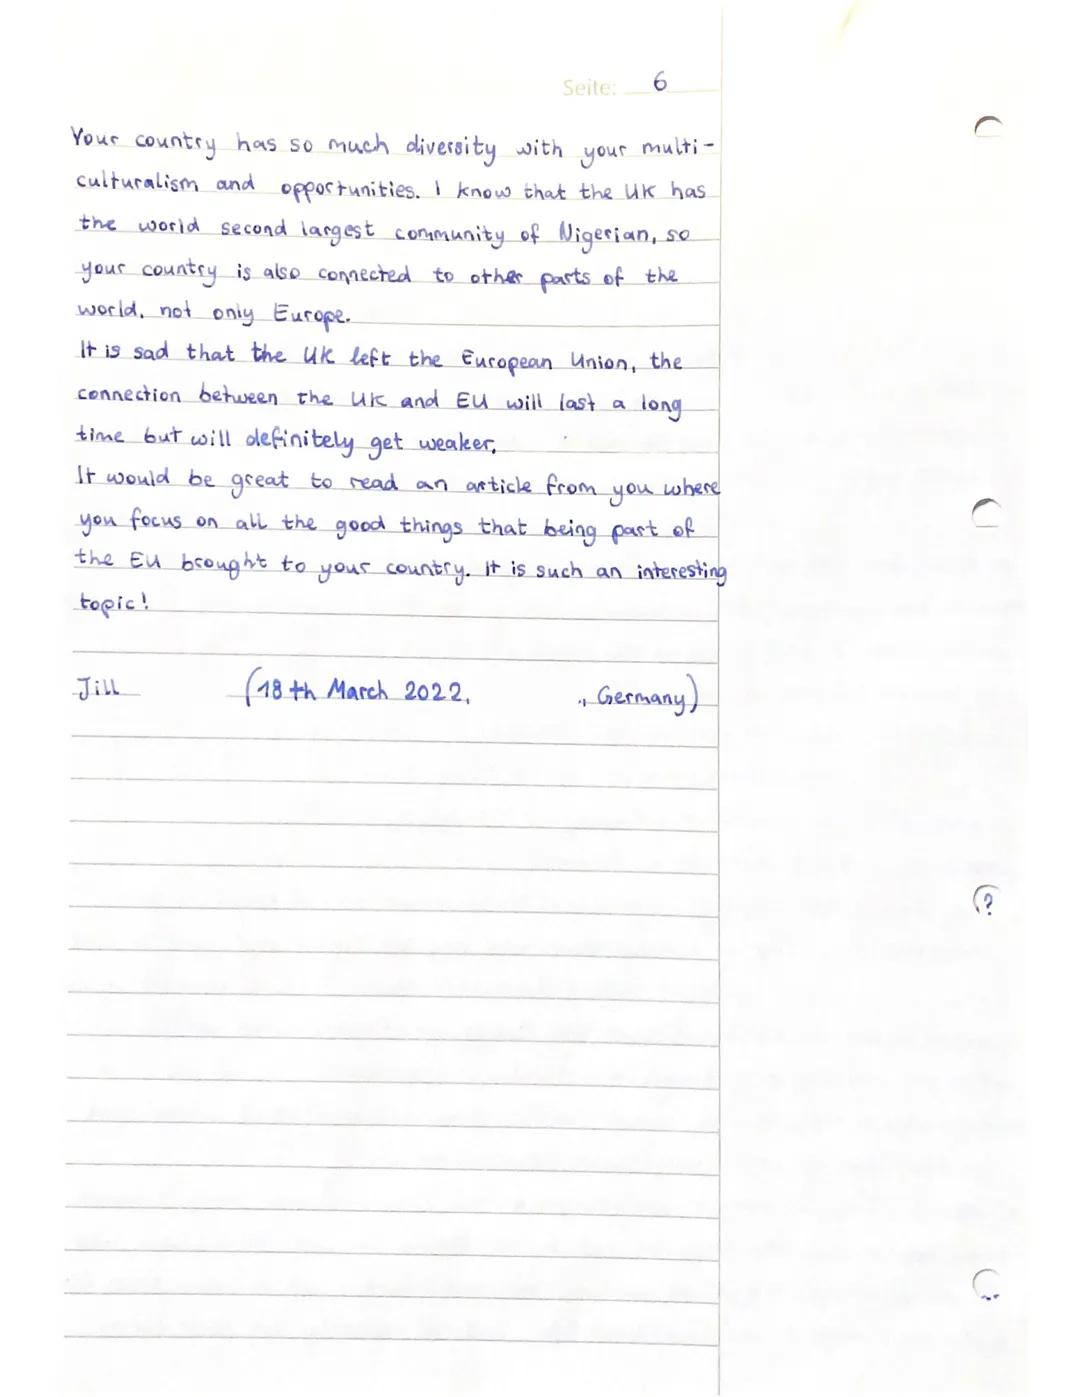 Seite: 6
Your country has so much diversity with your multi-
culturalism and opportunities. I know that the UK has
the world second largest community of Nigerian, so
your country is also connected to other parts of the
world, not only Europe.
It is sad that the UK left the European Union, the
connection between the UK and EU will last a long
time but will definitely get weaker.
It would be great to read an article from you where
you focus on all the good things that being part of
the EU brought to your country. It is such an interesting
topic!
Jill (18th March 2022, ., Germany)
?